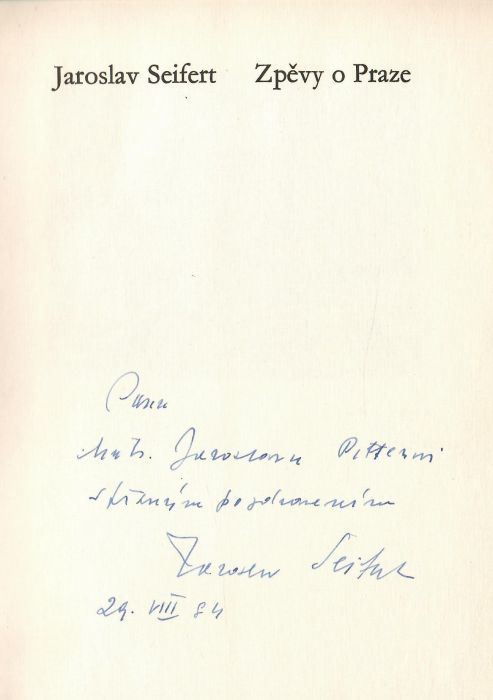 Jaroslav Seifert Zpěvy o Praze
Panu
Jaroslavu Pitterovi
pozdravením
Jaroslav Seifert
29. VIII 84